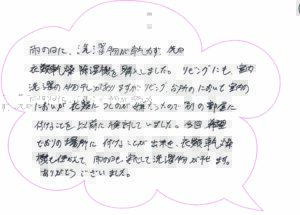 雨の日に、洗濯物が乾かず、先日
衣類乾燥除湿機を購入しました。リビングにも、室内
洗濯の物干しがありますが、リビング、台所のにおいで室内の
においが衣類につくのが嫌だったので別の部屋に
付けることを以前に検討していました。今回希望
どおりの場所に付けることが出来、衣類乾燥
機も使えて、雨の日も安心して洗濯物が干せます。
ありがとうございました。